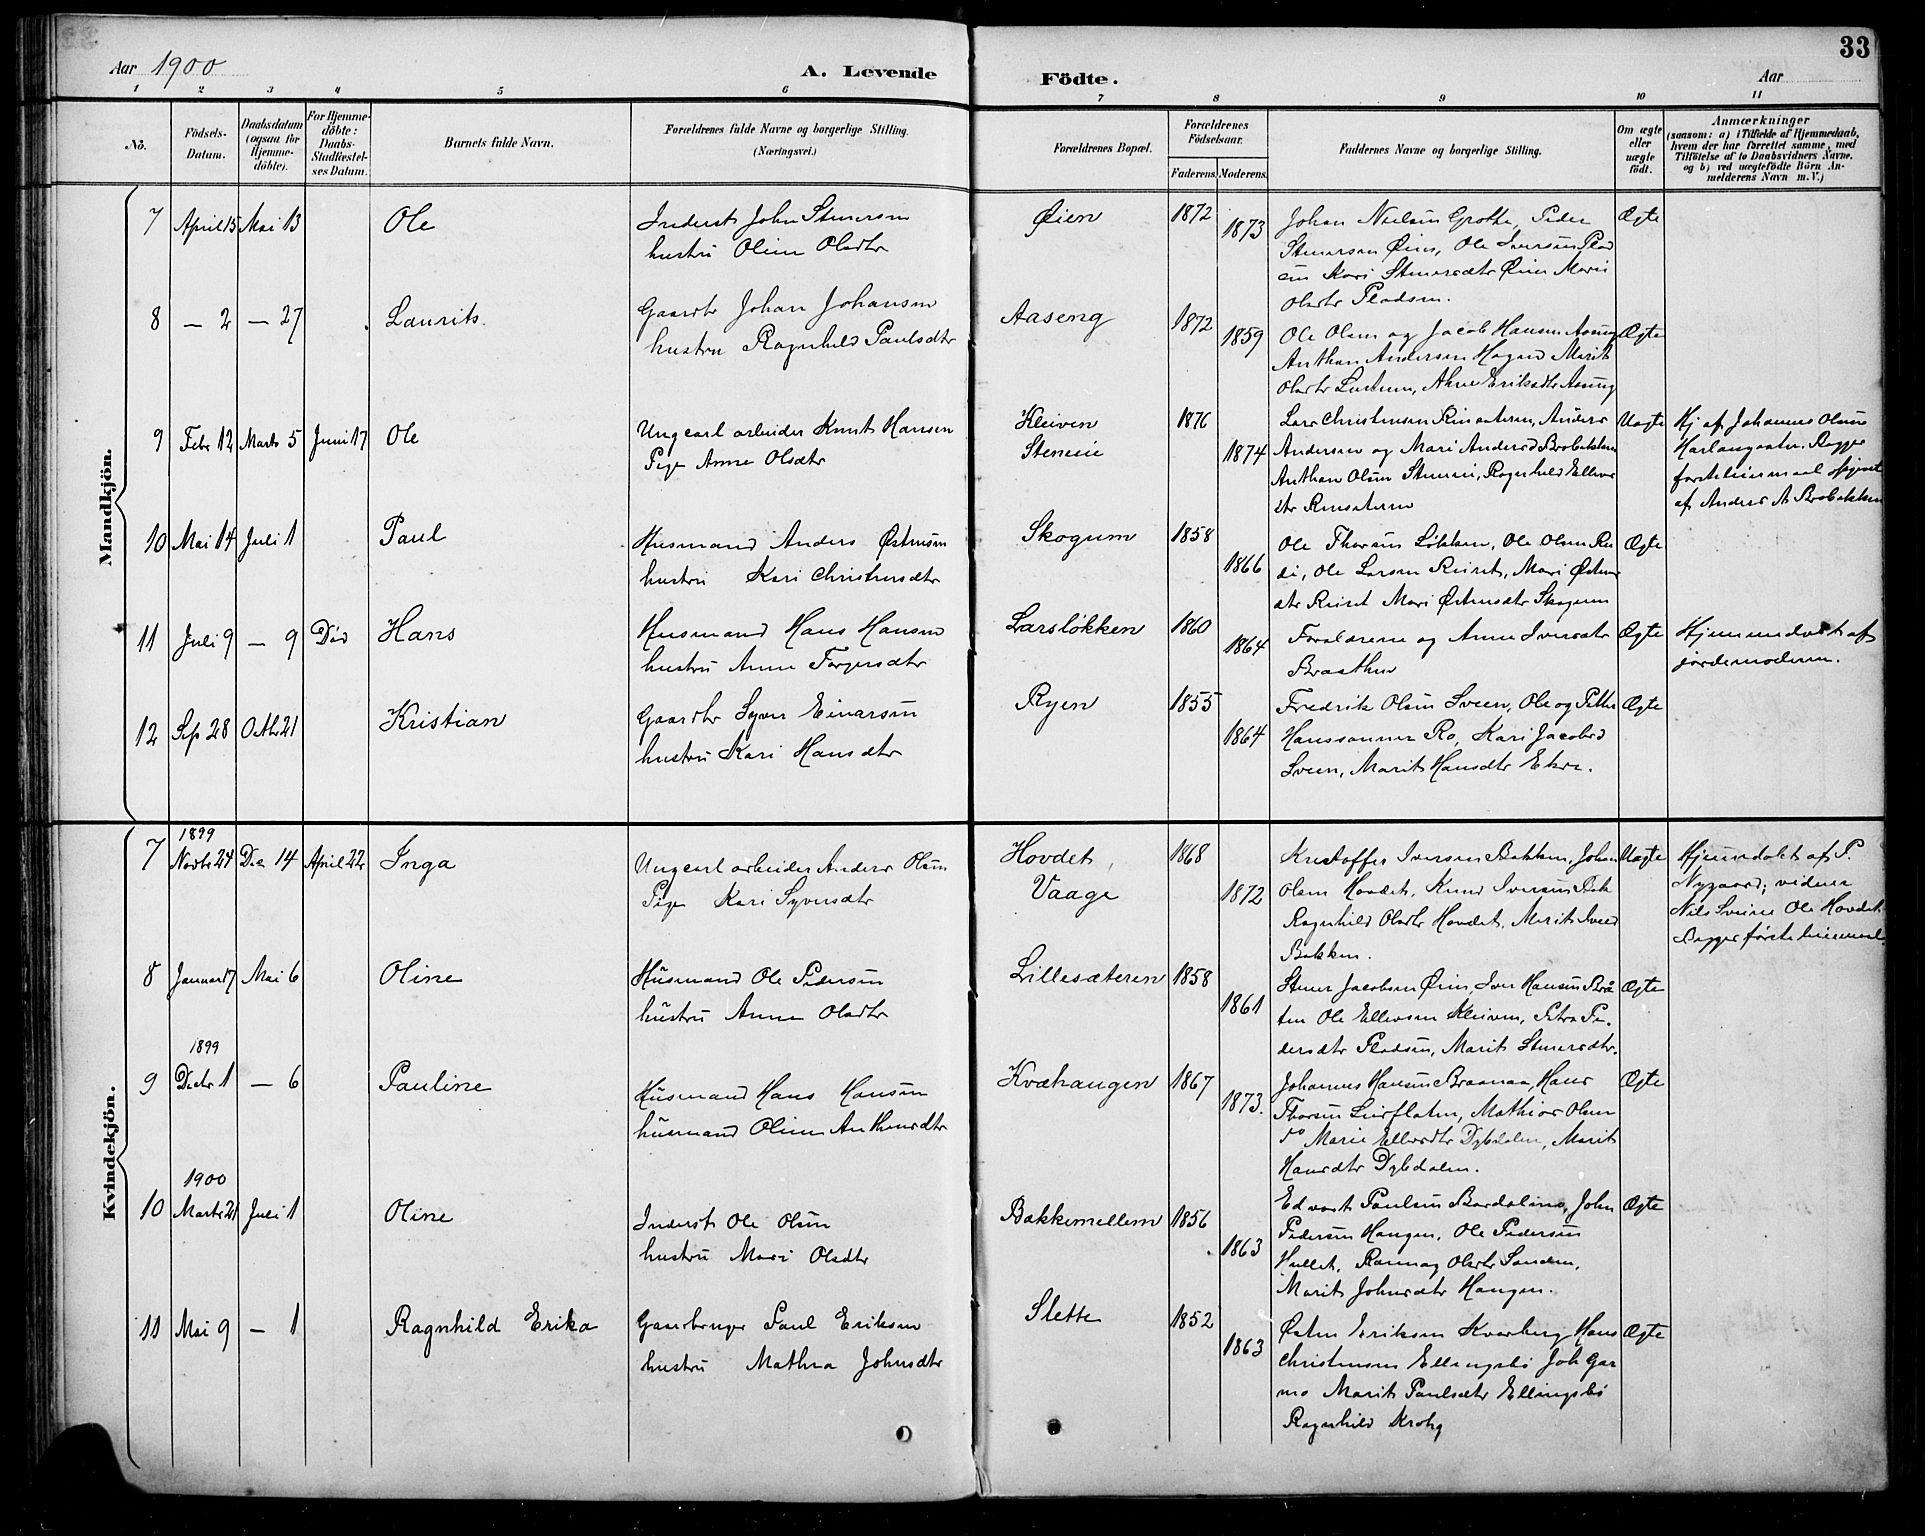 Aar 1900
A. Levende
Födte.
Aar
33
1 2 3 4 5 6 7 8 9 10 11
No.
Födsels-
Datum.
Daabsdatum
(ogsaa for
Hjemme-
döbte).
For Hjemme-
döbte:
Daabs-
Stadfæstel-
ses Datum.
Barnets fulde Navn.
Forældrenes fulde Navne og borgerlige Stilling.
(Næringsvei.)
Forældrenes Bopæl.
Forældrenes
Födselsaar.
Faderens. Moderens.
Faddernes Navne og borgerlige Stilling.
Om ægte
eller
uægte
födt.
Anmærkninger
(saasom: a) i Tilfælde af Hjemmedaab,
hvem der har forrettet samme, med
Tilföielse af to Daabsvidners Navne,
og b) ved uægtefödte Börn An-
melderens Navn m. V.)
Mandkjön.
7 April 15 Mai 13 Ole
Inderst John Stenersen
hustru Oline Olsdtr
Øien 1872 1873
Johan Nielsen Grothe, Peder
Stenersen Øien, Ole Iversen Plad
sen Kari Stenersdtr Øien Marie
Olsdtr Pladsen.
Ægte
8 — 2 — 27 Laurits.
Gaardbr Johan Johansen
hustru Ragnhild Paulsdtr
Aaseng 1872 1859
Ole Olsen og Jacob Hansen Aseng
Anthon Andersen Hagen Marit
Olsdtr, Eriksdtr Aseng
Ægte
9 Febr 12 Marts 5 Juni 17 Ole
Ungcarl arbeider Knut Hansen
Pige Anne Olsdtr
Kleiven
Steneie
1876 1874
Lars Christensen, Anders
Andersen og Mari Andersd Brobakken
Anthon Olsen Steneie, Ragnhild Ellevs
dtr
Uægte
Hj af Johannes Olsen
Begges
første leiermaal opgivet
af Anders A Brobakken
10 Mai 14 Juli 1 Paul
Husmand Anders Østensen
hustru Kari Christensdtr
Skogum 1858 1866
Ole Thorsen Løkken, Ole Olsen
Ole Larsen, Mari Østens
dtr Mari Østensdtr Skogum
Ægte
11 Juli 9 — 9 Død Hans
Husmand Hans Hansen
hustru Anne Torgersdtr
Larsløkken 1860 1864
Forældrene og Anne Iversdtr
Braathen
Ægte
Hjemmedøbt af
jordemoderen.
12 Sep 28 Octbr 21 Kristian
Gaardbr Syver Einarsen
hustru Kari Hansdtr
Ryen 1855 1864
Fredrik Olsen Sveen, Ole og Petter
Hanssønner Ro, Kari Jacobsd
Sveen, Marit Hansdtr Ekre.
Ægte
Kvindekjön.
1899
7 Novbr 24 Dec 14 April 22 Inga
Ungcarl arbeider Anders Olsen
Pige Kari Syversdtr
Hovdet,
Vaage
1868 1872
Kristoffer Iversen Bakken, Johan
Olsen Hovdet, Knud Iversen
Ragnhild Olsdtr Hovdet, Marit Iversd
Bakken.
Uægte
Hjemmedøbt af P.
Nygaard; vidner
Nils Sveine Ole Hovdet.
Begges første leiermaal
8 Januar 17 Mai 6 Oline
Husmand Ole Pedersen
hustru Anne Olsdtr
Lillesæteren 1858 1861
Stener Jacobsen Øien, Iver Hansen Brå
ten Ole Ellevsen Kleiven, Petra Pe-
dersdtr Pladsen, Marit Stenersdtr.
Ægte
1899
9 Decbr 1 — 6 Pauline
Husmand Hans Hansen
husmand Oline Anthonsdtr
Kvæhaugen 1867 1873.
Johannes Hansen Braanaa, Hans
Thorsen Leirflaten, Mathias Olsen
do Marie Ellevsdtr Dybdalen, Marit
Hansdtr Dybdalen.
Ægte
1900
10 Marts 21 Juli 1 Oline
Inderst Ole Olsen
hustru Mari Olsdtr
Bakkemellem 1856 1863
Edvart Paulsen Bardalmo, John
Pedersen Haugen, Ole Pedersen
Hullet, Rannog Olsdtr Sanden,
Marit Johnsdtr Haugen.
Ægte
11 Mai 9 — 1 Ragnhild Erika
Gaardbruger Paul Eriksen
hustru Mathea Johnsdtr
Slette 1852 1863
Østen Eriksen Kvarberg Hans
Christensen Ellingsbø Joh Gar
mo Marit Paulsdtr Ellingsbø
Ragnhild Krohg
Ægte